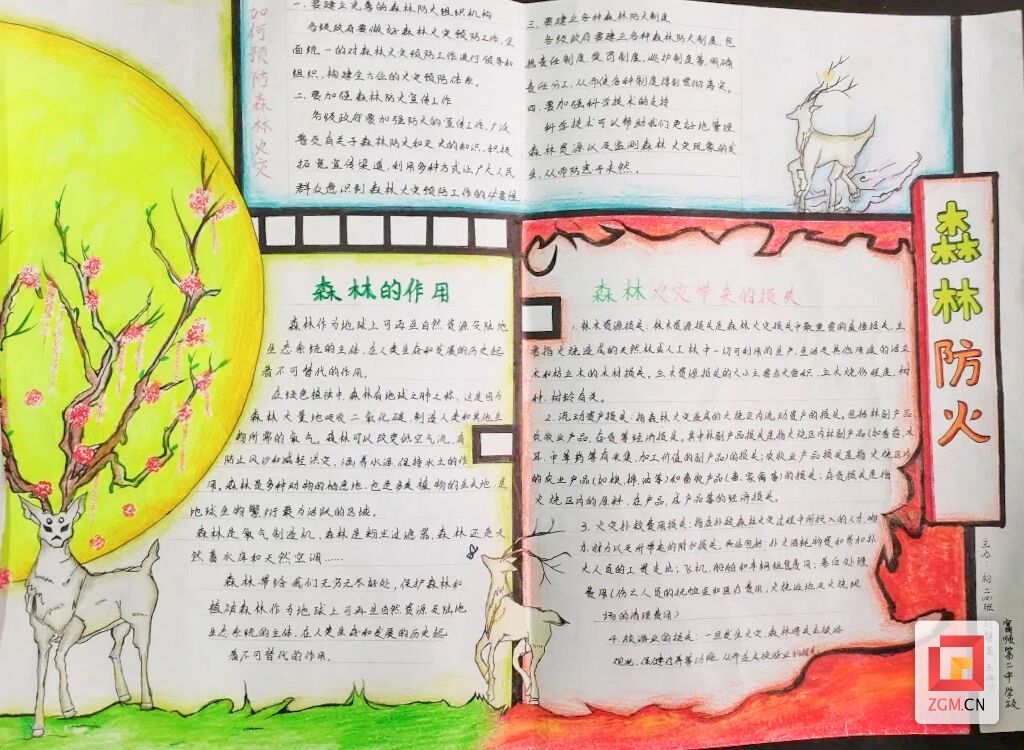 如何预防森林火灾
一.要建立完善的防火组织机构
各级政府要做好森林火灾预防工作,全
面统一的对森林火灾预防工作进行领导和
组织,构建全方位的火灾预防体系。
二.要加强森林防火宣传工作
各级政府要加强防火的宣传工作,广泛
普及有关于森林防火和灭火的知识.积极
拓宽宣传渠道,利用多种方式让广大人民
群众意识到森林火灾预防工作的必要性
三.要建立各种森林防火制度
各级政府要建立各种森林防火制度,包
括责任制度,奖罚制度,巡护制度等,明确
责任分工,从而使各种制度得到贯彻落实。
四.要加强科学技术的支持
科学技术可以帮助我们更好地管理
森林资源以及监测森林火灾现象的发
生,从而防患于未然.
森林防火
森林的作用
森林作为地球上可再生自然资源及陆地
生态系统的主体,在人类生存和发展的历史起
着不可替代的作用。
在绿色植被中,森林有地球之肺之称,这是因为
森林大量地吸收二氧化碳,制造人类和其他生
物所需的氧气。森林可以改变低空气流,有
防止风沙和减轻洪灾,涵养水源,保持水土的作
用。森林是多种动物的栖息地,也是多类植物的生长地,是
地球生物繁衍最为活跃的区域。
森林是氧气制造机,森林是粉尘过滤器,森林还是天
然蓄水库和天然空调……
森林带给我们无穷无尽好处,保护森林和
植被森林作为地球上可再生自然资源及陆地
生态系统的主体,在人类生存和发展的历史起
着不可替代的作用。
森林火灾带来的损失
1.林木资源损失:林木资源损失是森林火灾损失中最重要的直接损失,主
要指火烧造成的天然林或人工林中一切可利用的生产,生活及其他用途的活立
木和枯立木的木材损失。立木资源损失的大小主要与火害面积、立木烧伤程度、树
种、树龄有关。
2.流动资产损失:指森林火灾造成的火烧区内流动资产的损失。包括林副产品
农牧业产品、存货等经济损失。其中林副产品损失是指火烧区内林副产品(如香菇、木
耳、中草药等有采集、加工价值的副产品)的损失;农牧业产品损失是指火烧区内
的农业产品(如粮、棉、油等)和畜牧产品(畜、家禽等)的损失;存货损失是指
火烧区内的原料、在产品、成产品等的经济损失。
3.火灾扑救费用损失:指在扑救森林火灾过程中所投入的人力、物
力、财力以及所带来的附加损失。具体包括:扑火消耗物资和参加扑
火人员的工资支出;飞机、船舶和车辆租赁费用;善后处理
费用(伤亡人员的抚恤金和医疗费用、火烧迹地及火烧现
场的清理费用)
4.旅游业的损失:一旦发生火灾,森林将失去旅游
观光、保健疗养等功能,从而造成旅游业的损失
主办:初二四班
富顺第二中学校
ZGM.CN